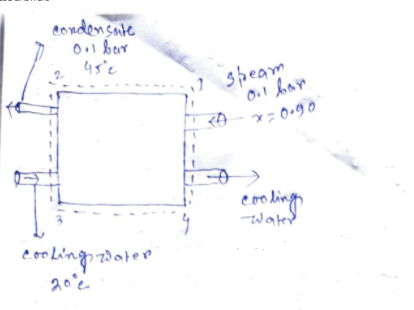 condensate
0.1 bar
45°c
2
1
steam
0.1 bar
x = 0.90
cooling
water
3
4
cooling water
20°c